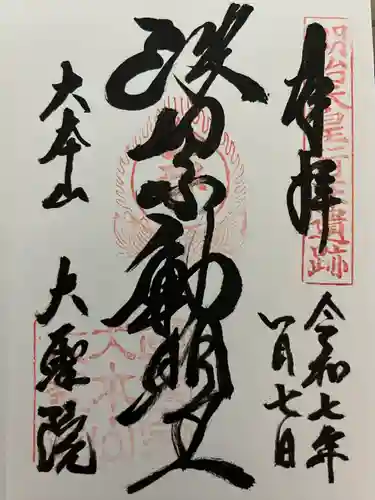 明治天皇遺跡
奉拝
令和七年
八月七日
波切不動明王
大本山
大聖院